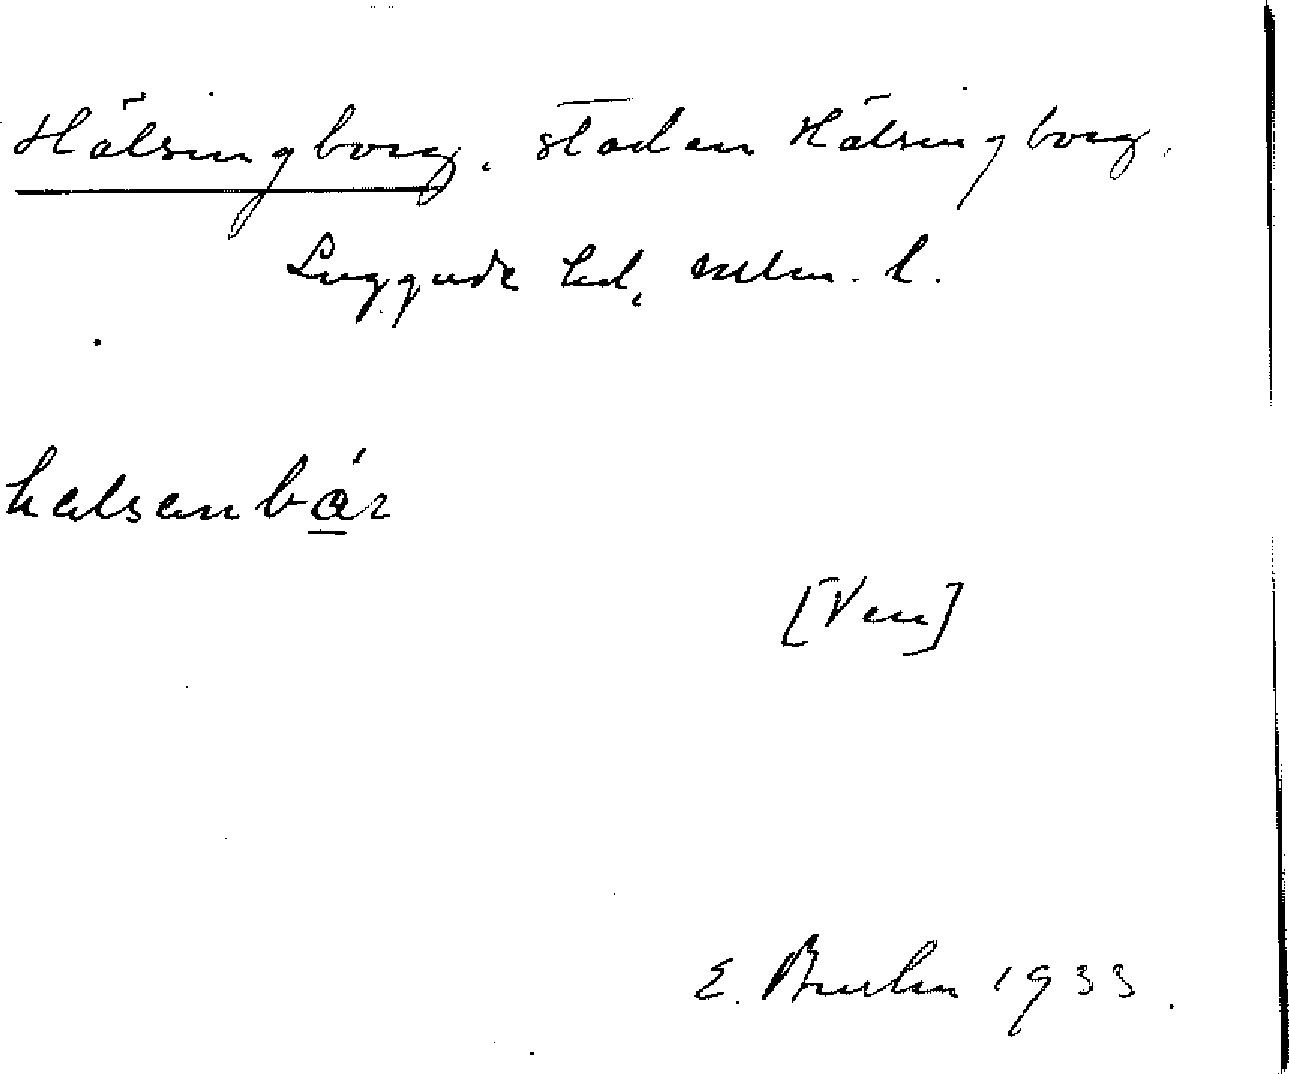 Hälsingborg. staden Hälsingborg.
Luggude hd, mlm. l.
hælsenbár
[Ven]
E. Bruhn 1933.